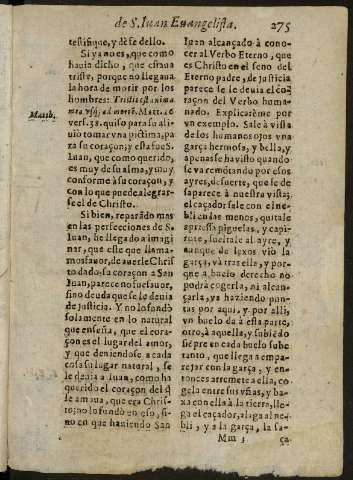 de S. Iuan Euangelista. 275
testifique, y dè se dello.
Si ya no es, que como
hauia dicho, que estaua
triste, porque no llegaua
la hora de morir por los
hombres: Tristis est anima
mea vsq; ad mortē. Matt. 26
vers. 38. quiso para su ali-
uio tomar vna pictima, pa
ra su coraçon; y esta fue S.
Iuan, que como querido,
es muy de su alma, y muy
conforme à su coraçon, y
con lo que puede alegrar-
se el de Christo.
Matth.
Si bien, reparādo mas
en las perfecciones de S.
Iuan, he llegado a imagi
nar, que este que llama-
mos fauor, de auerle Chris
to dado su coraçon a San
Iuan, parece no fue fauor,
sino deuda que se le deuia
de justicia. Y no lo fundò
solamente en lo natural
que enseña, que el cora-
çon es el lugar del amor,
y que deuiendose a cada
cosa su lugar natural, se
le deuia a Iuan, como ha
querido el coraçon del q̄
le amaua, que era Chris-
to; no lo fundò en eso, si-
no en que hauiendo San
Iuan alcançado à cono-
cer al Verbo Eterno, que
es Christo en el seno del
Eterno padre, de justicia
parece se le deuia el co-
raçon del Verbo huma-
nado. Explicarème por
vn exemplo. Sale à vista
de los humanos ojos vna
garça hermosa, y bella, y
apenas se ha visto quando
se va remõtando por esos
ayres, de suerte, que se de
saparece à nuestra vista;
el caçador sale con el ne-
bli en las manos, quitale
apriessa piguelas, y capi-
rote, sueltale al ayre, y
aunque de lexos viò la
garça, và tras ella, y por-
que a buelo derecho no
podrà cogerla, ni alcan-
çarla, va haziendo pun-
tas por aqui, y por alli,
vn buelo da à esta parte,
otro, à aquella, y subiēdo
siēpre en cada buelo sube
tanto, que llega a empa-
rejar con la garça, y en-
tonces arremete a ella, co
gela entre sus vñas, y ba-
xa con ella à la tierra, lle-
ga el caçador, alaga al ne-
bli, y a la garça, la sa-
Mm 3 ça-